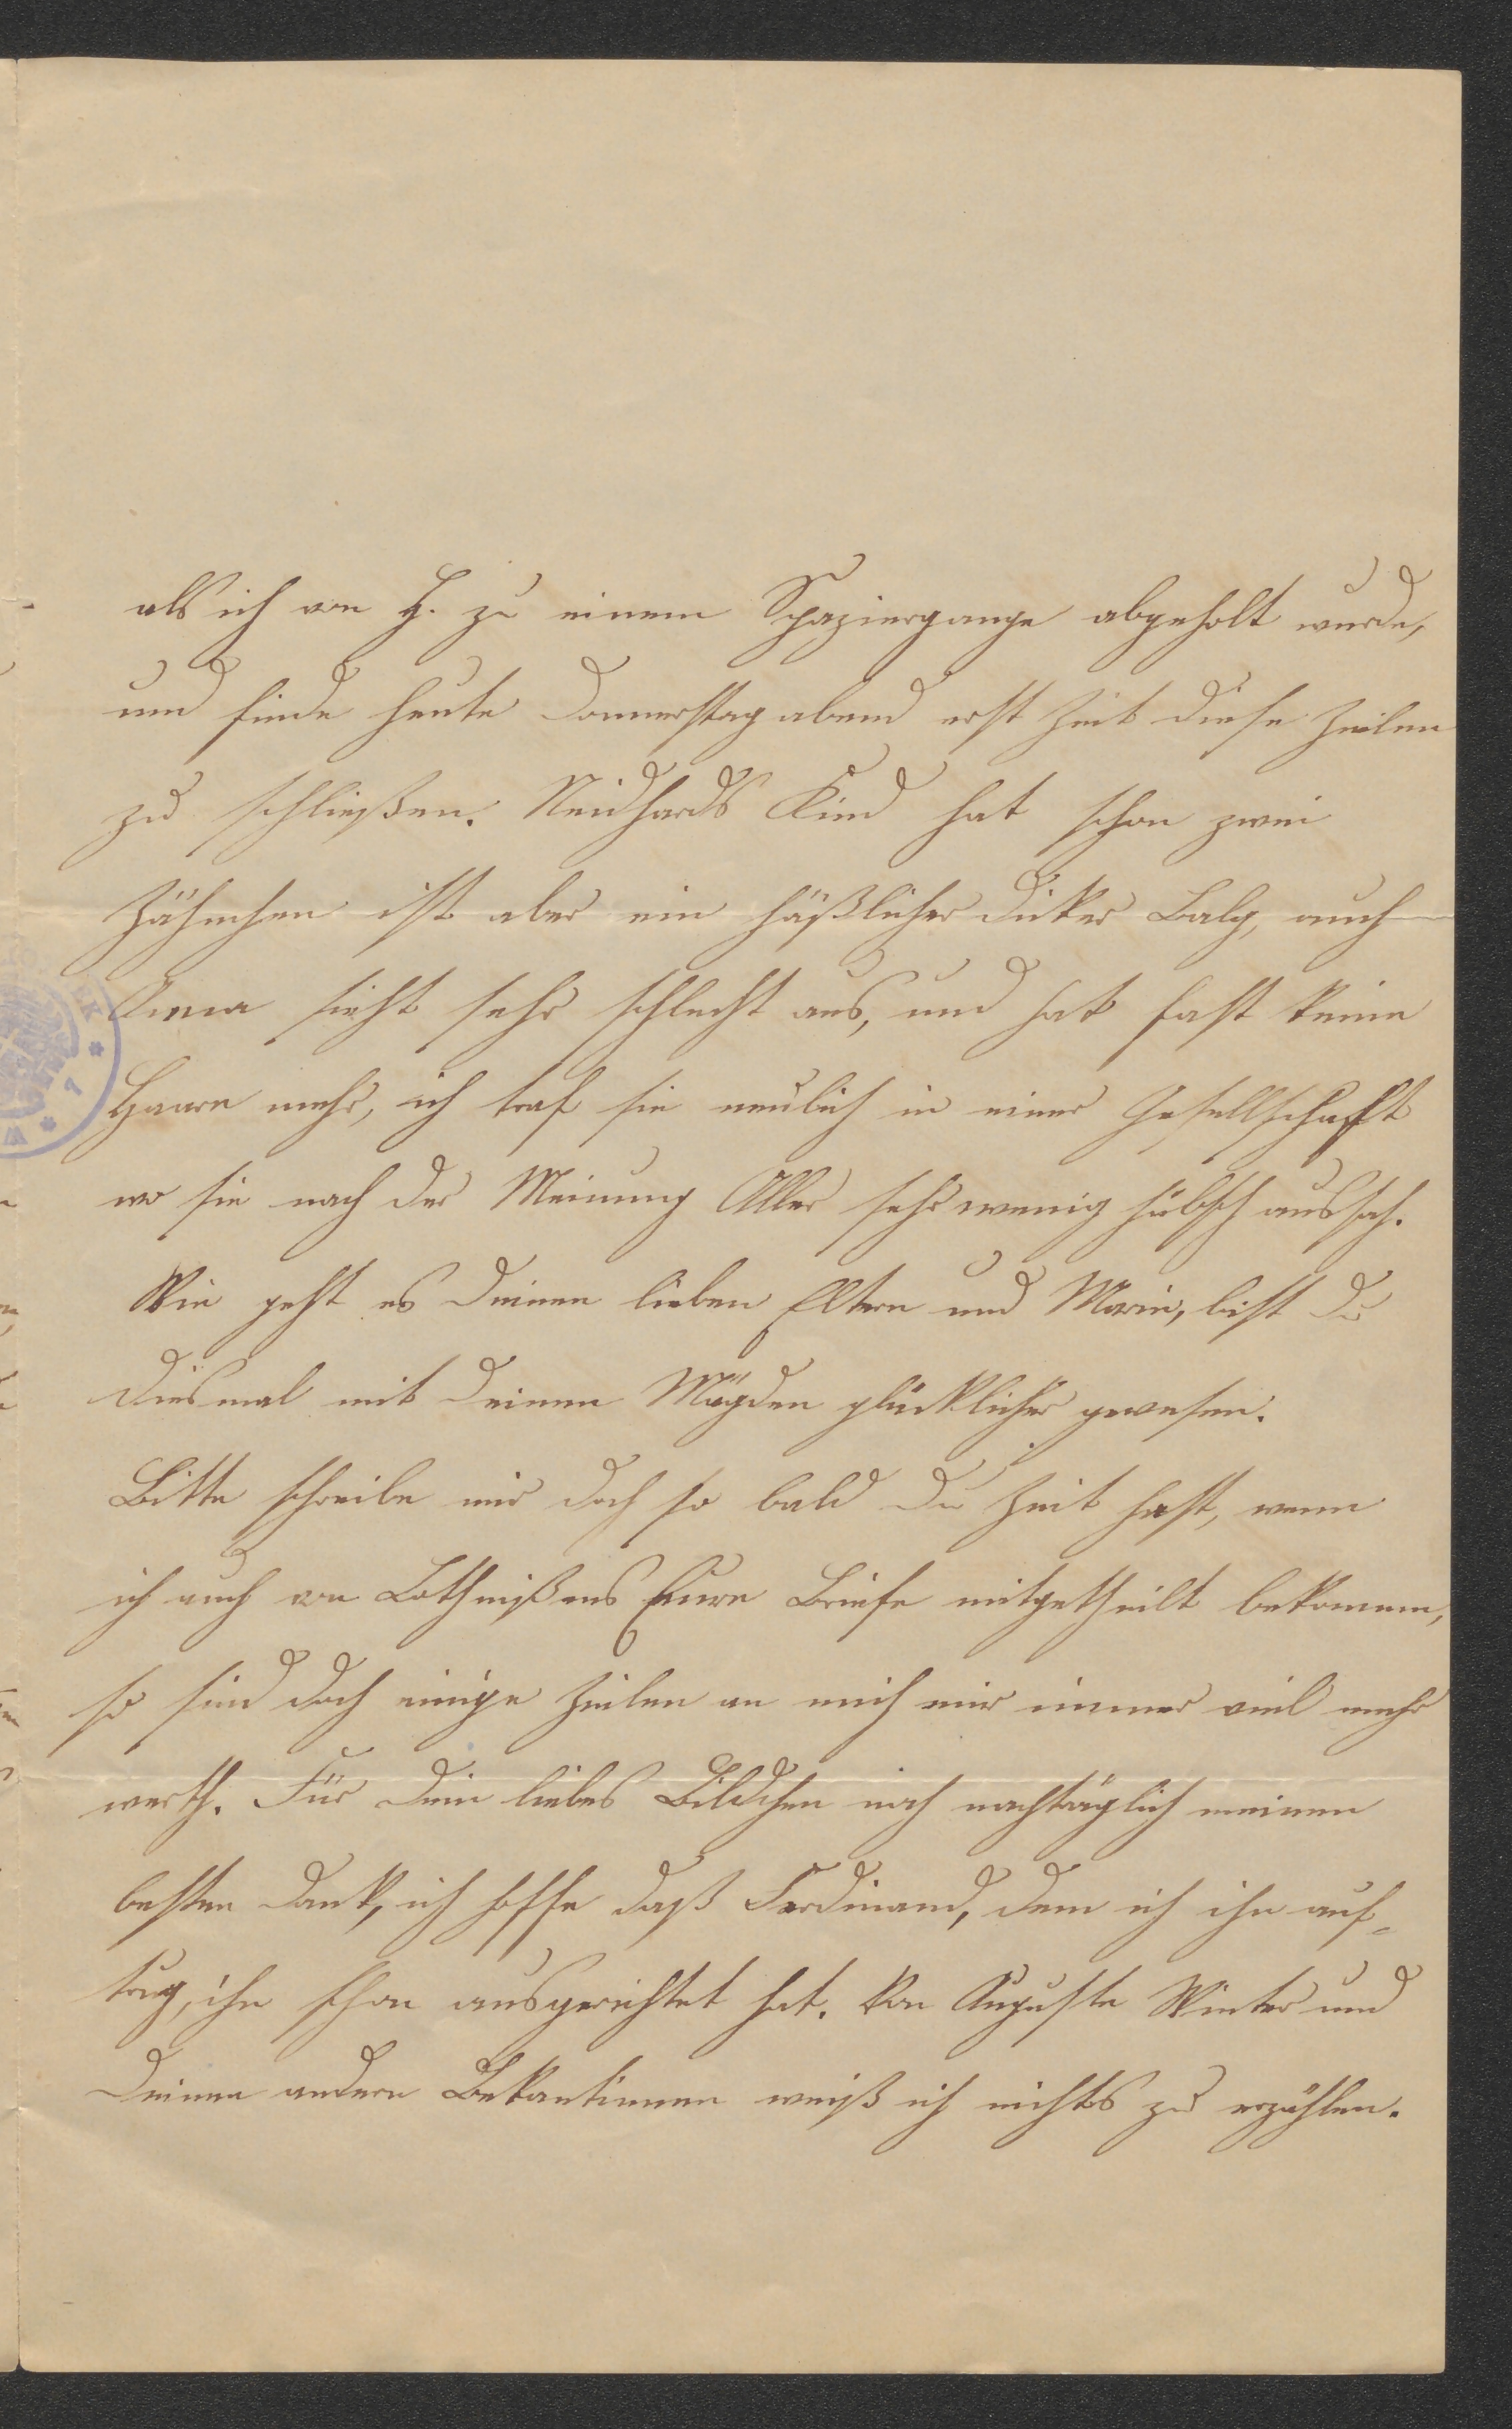 als ich von H. zu einem Spaziergange abgeholt wurde,
und finde heute Donnerstag abend erst Zeit diese Zeilen
zu schließen. Neidhards Kind hat schon zwei
Zähnchen ist aber ein häßlicher dicker Balg, auch
Anna sieht sehr schlecht aus, und hat fast keine
Haare mehr, ich traf sie neulich in einer Gesellschaft
wo sie nach der Meinung Aller sehr wenig hübsch aussah.
Wie geht es Deinen lieben Eltern und Marie, bist Du
diesmal mit Deinen Mägden glücklicher gewesen.
Bitte schreibe mir doch so bald Du Zeit hast, wenn
ich auch von Eure Briefe mitgetheilt bekomme,
so sind doch einige Zeilen an mich mir immer viel mehr
werth. Für Dein liebes Bildchen noch nachträglich meinen
besten Dank, ich hoffe daß Ferdinand, dem ich ihn auf-
trug, ihn schon ausgerichtet hat. Von Auguste Winter und
Deinen andern Bekantinnen weiß ich nichts zu erzählen.